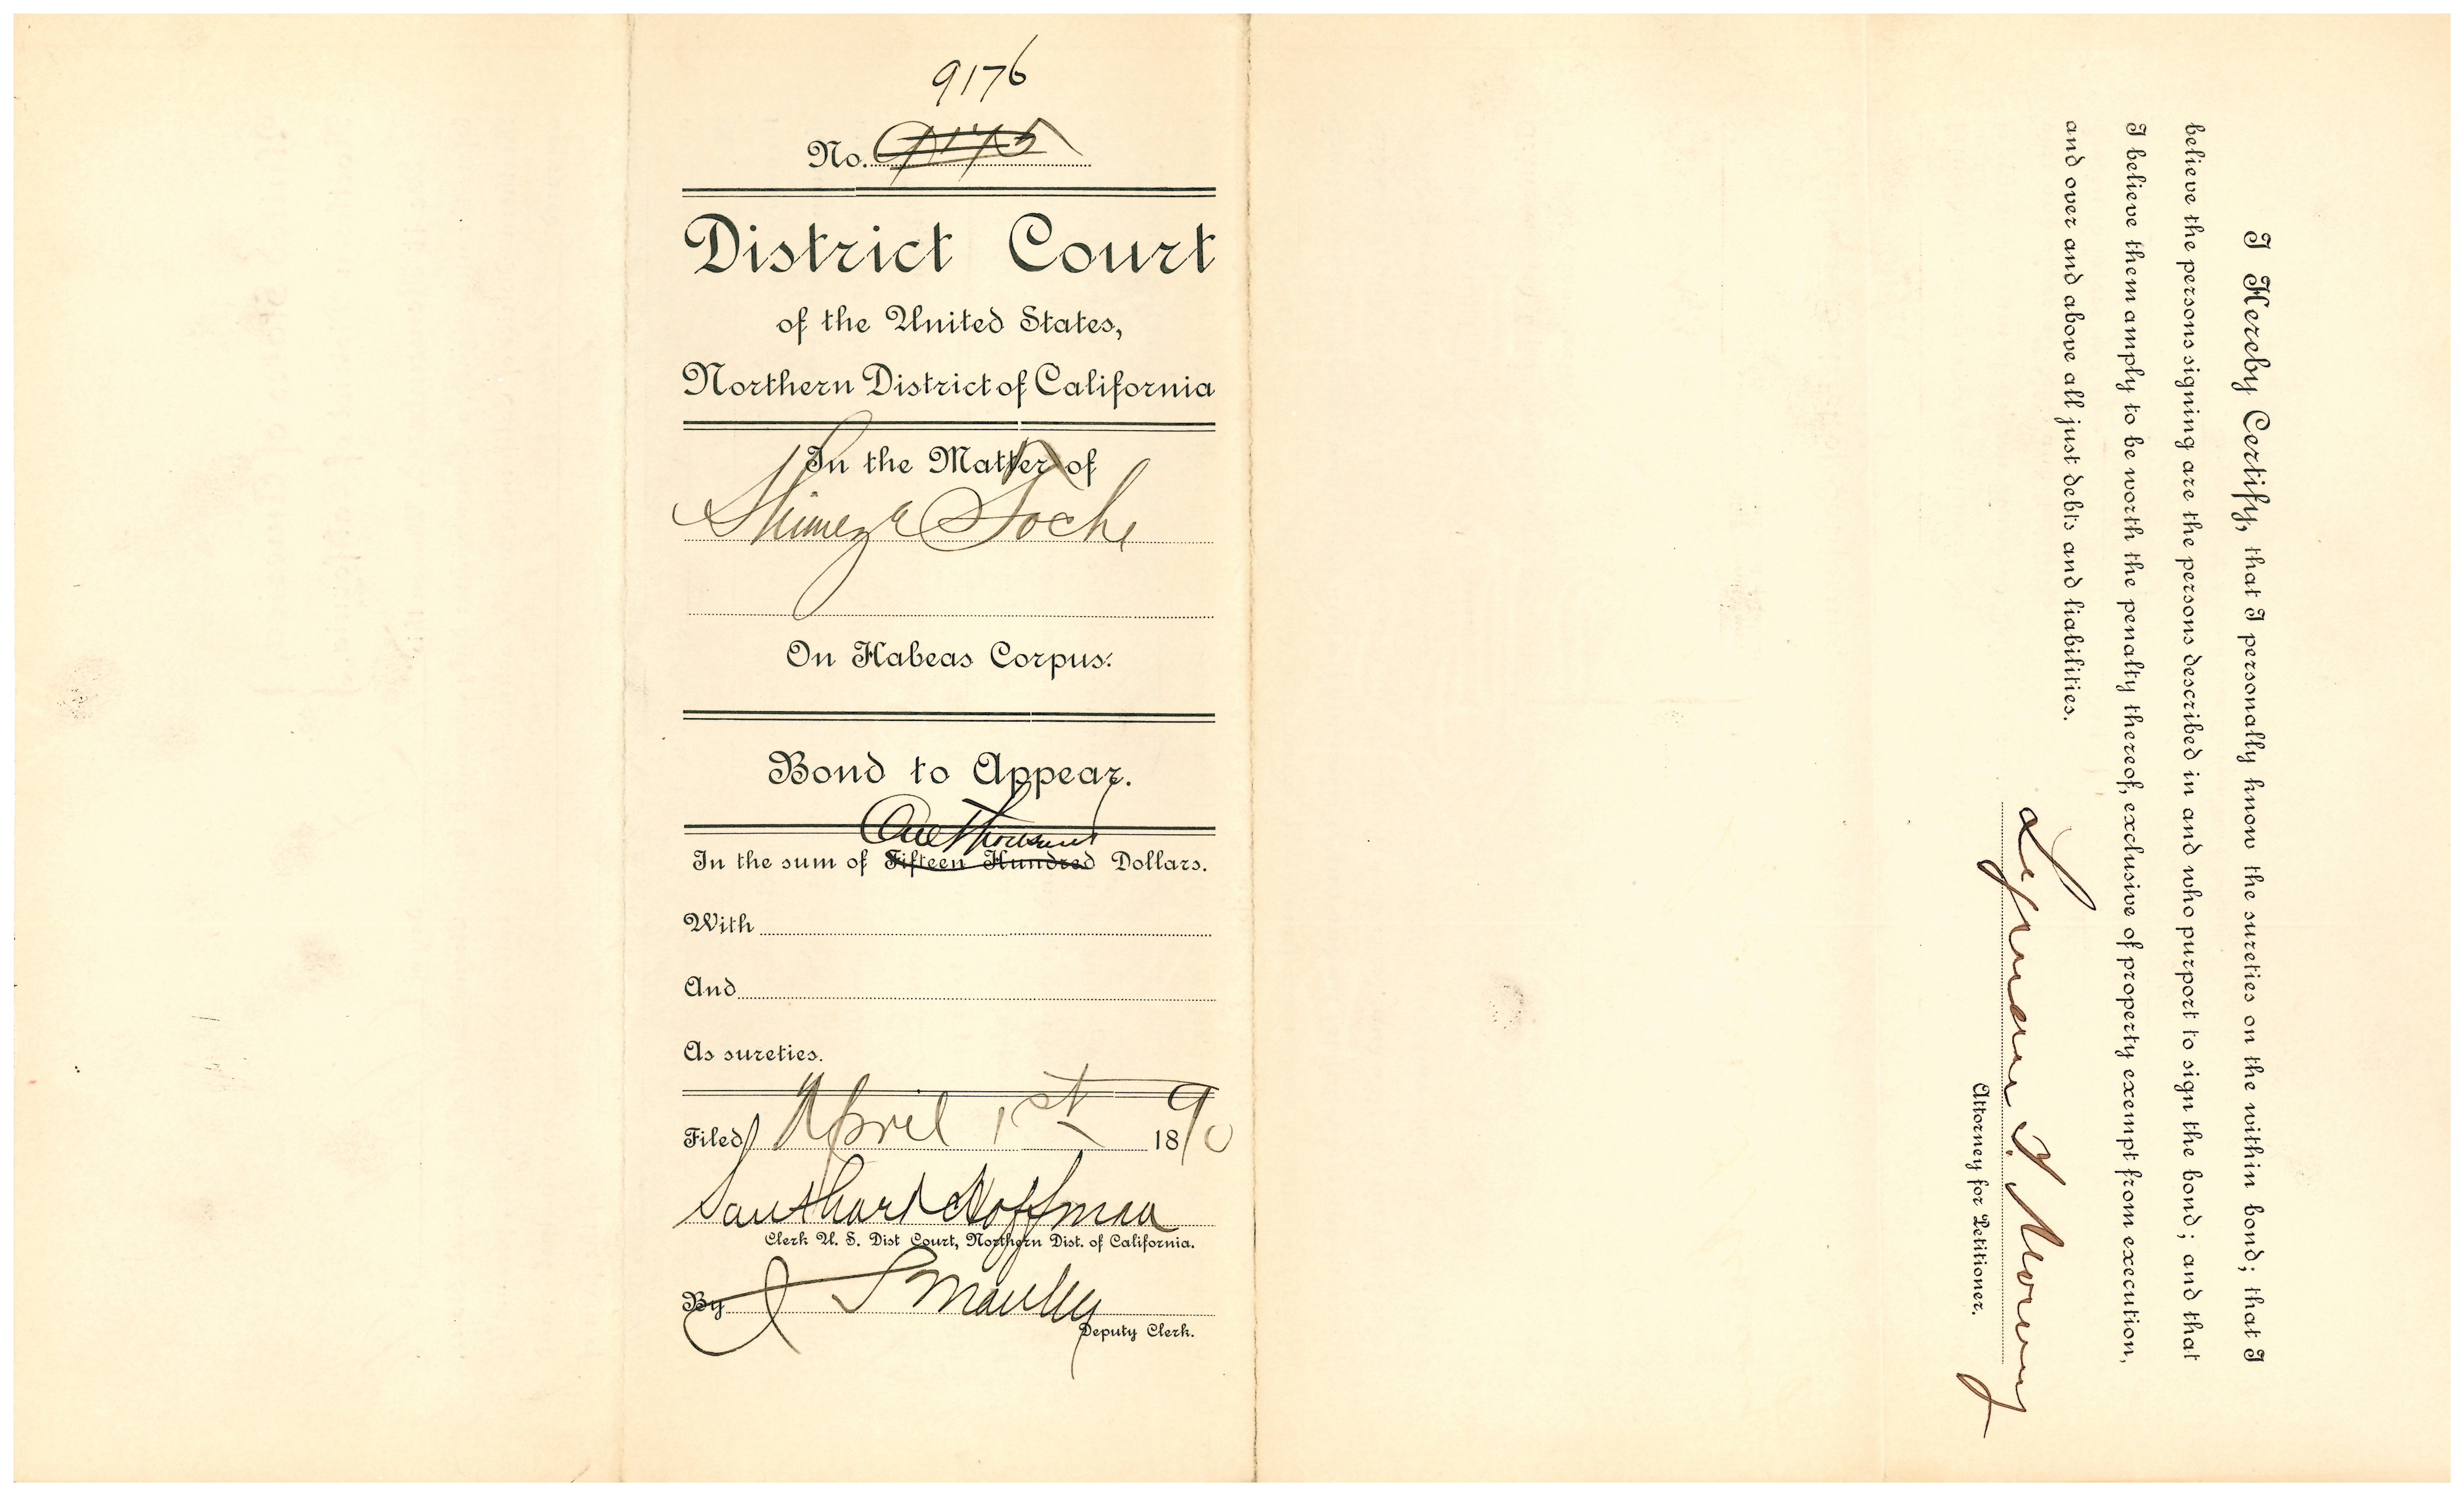 9176
No.
District Court
of the United States,
Northern District of California
In the Matter of
Shimeza Toche
On Habeas Corpus.
Bond to Appear.
One Thousand
In the sum of Fifteen Hundred Dollars.
With
And
As sureties.
Filed April 1st 1890
Southard Hoffman
Clerk U. S. Dist Court, Northern Dist. of California.
By
Deputy Clerk.
I Hereby Certify, that I personally know the sureties on the within bond; that I
believe the persons signing are the persons described in and who purport to sign the bond; and that
I believe them amply to be worth the penalty thereof, exclusive of property exempt from execution,
and over and above all just debts and liabilities.
Lyman I. Mowry
Attorney for Petitioner.